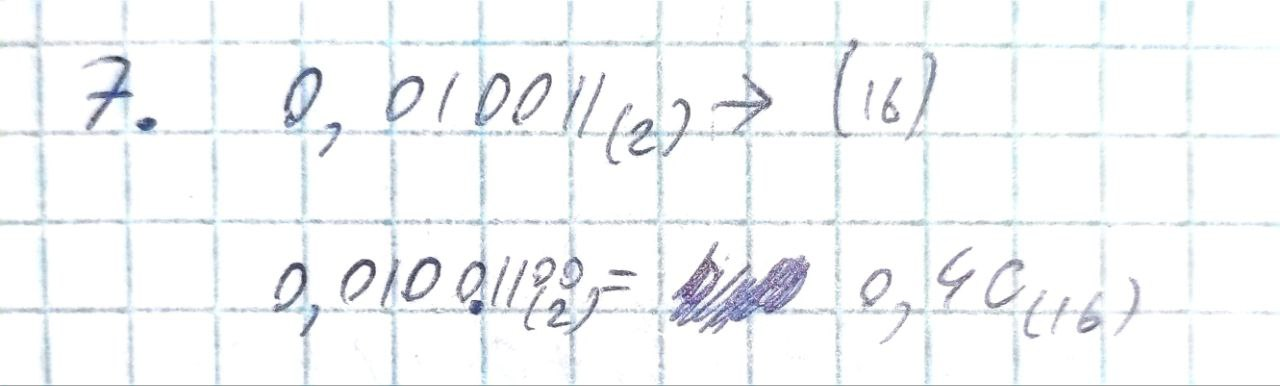 7. 0,010011(2) → (16)
0,0100.1100(2) = 0,4C(16)